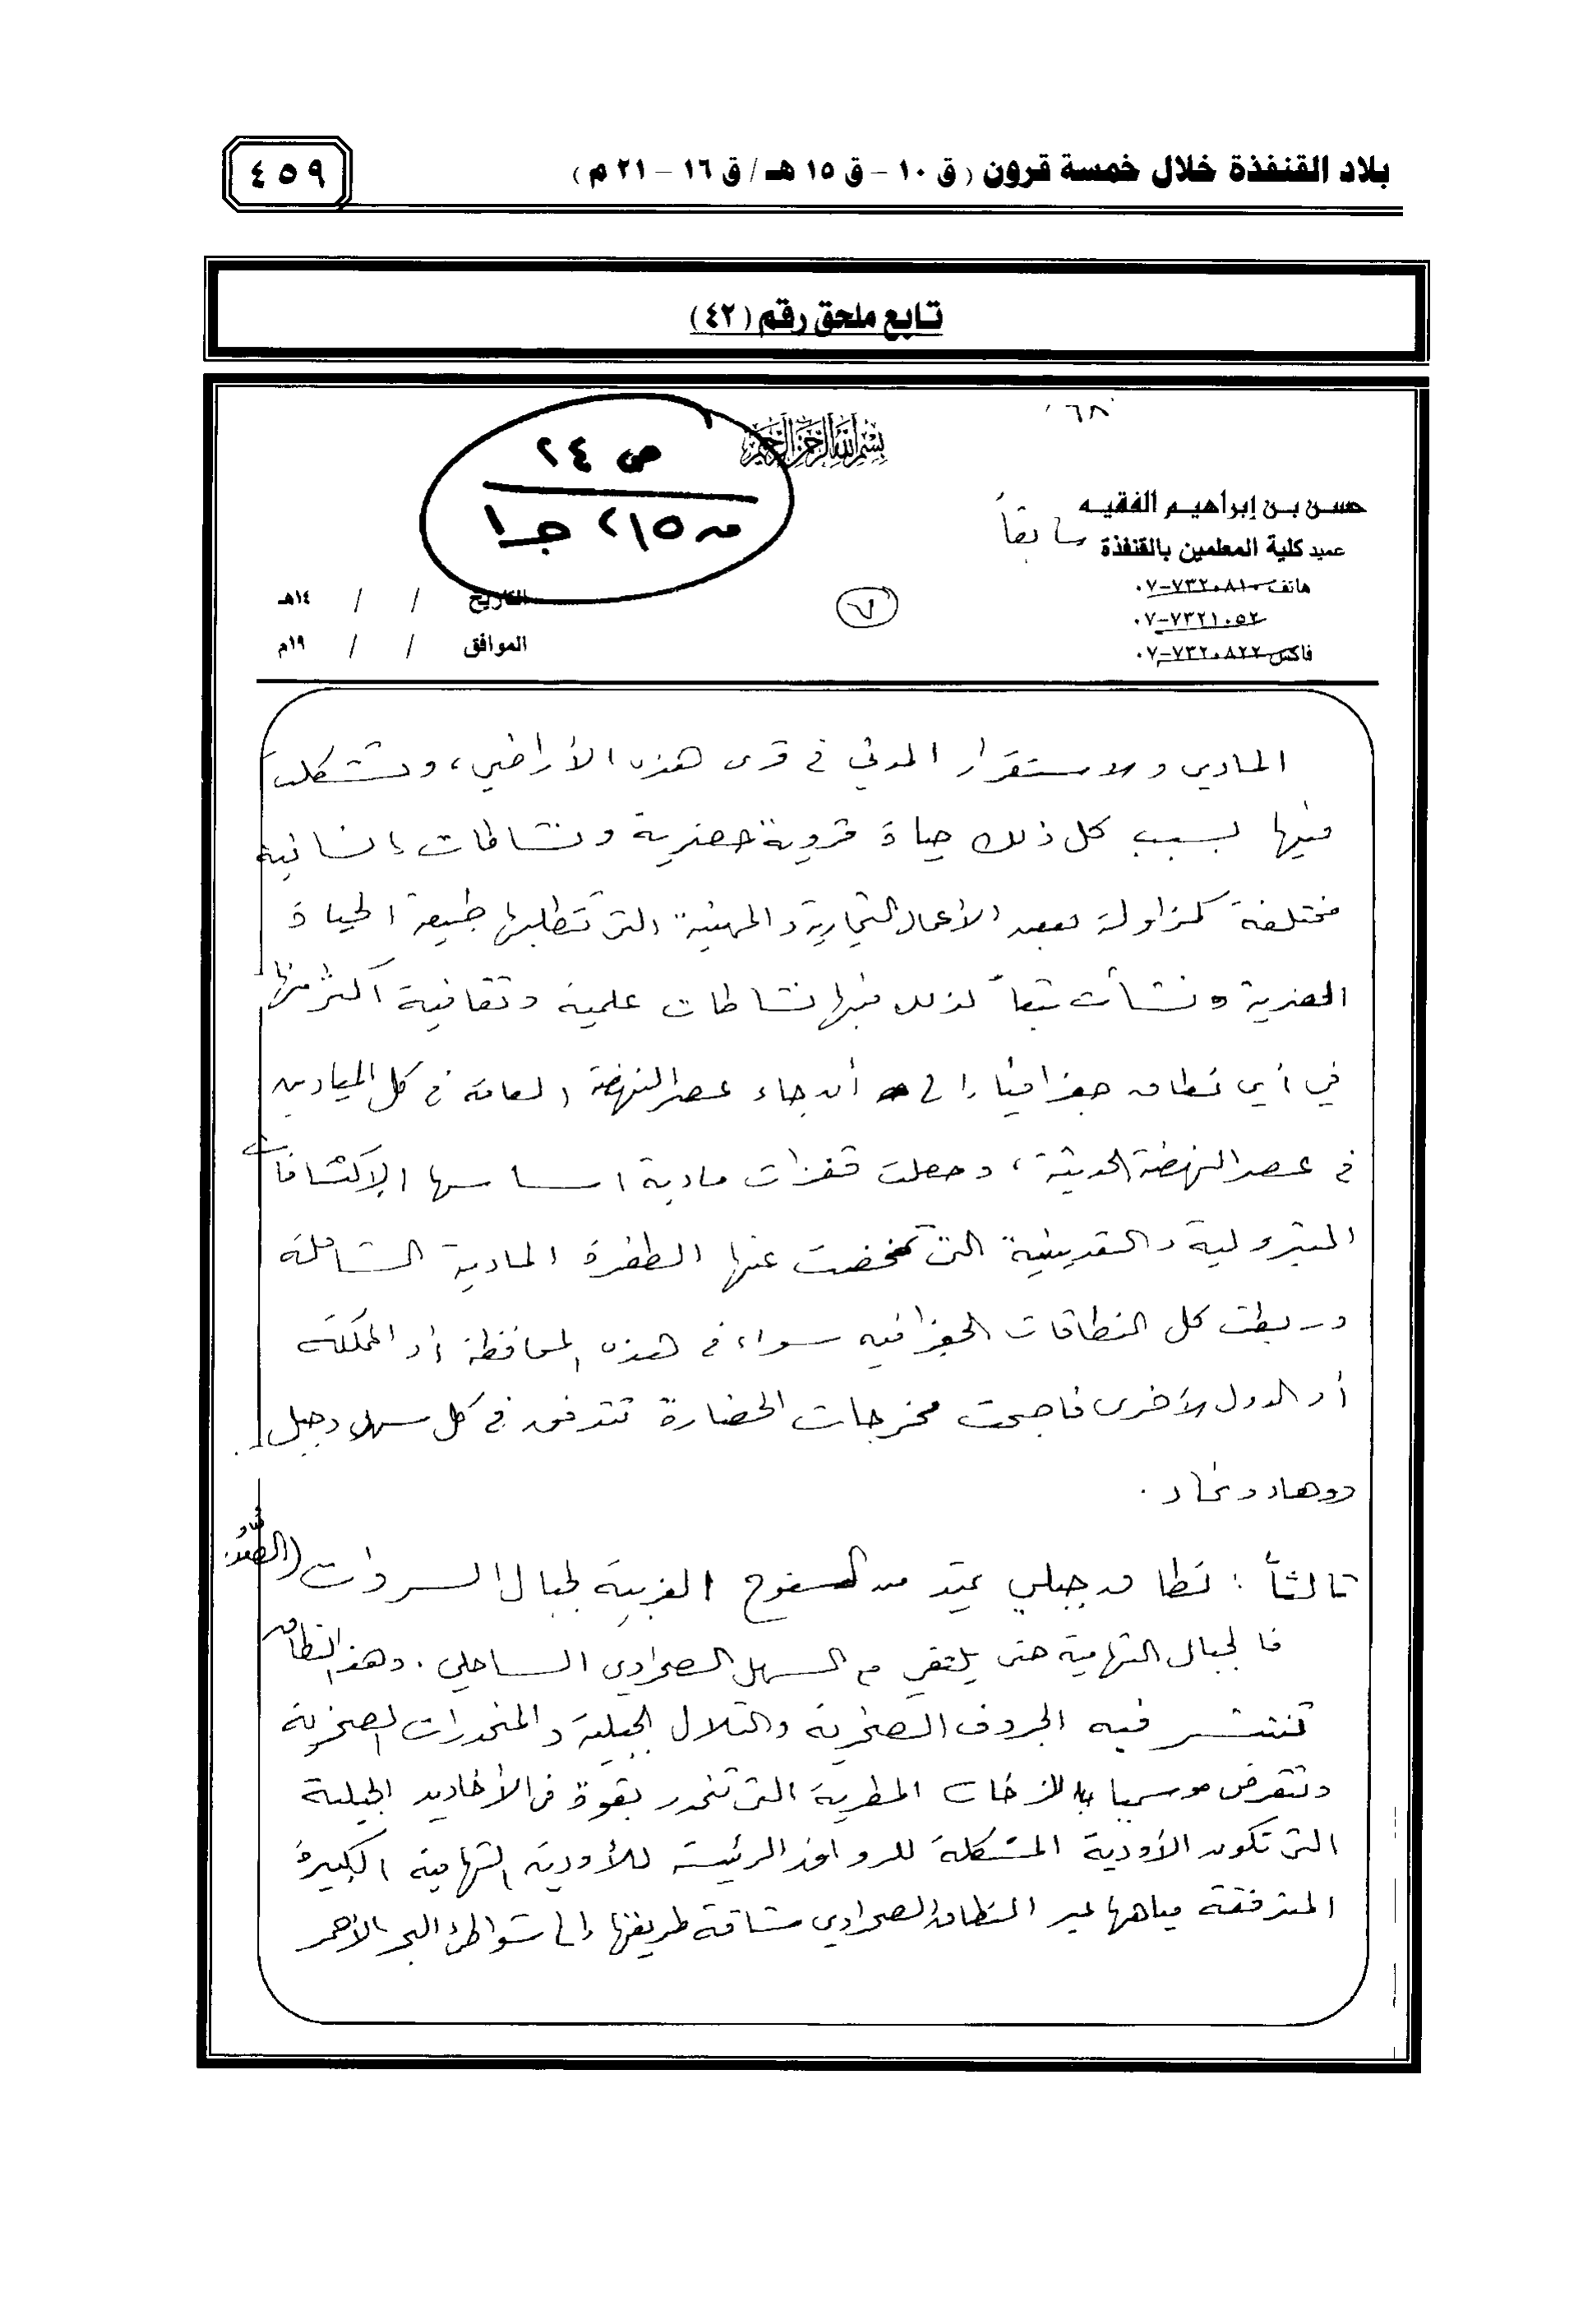 بلاد القنفذة خلال خمسة قرون (ق ١٠ - ق ١٥ هـ / ق ١٦ - ٢١ م)
٤٥٩
تابع ملحق رقم (٤٢)
٦٨
بسم الله الرحمن الرحيم
ص ٢٤
من ٢١٥ جـ ١
حسن بن إبراهيم الفقيه
عميد كلية المعلمين بالقنفذة سابقاً
هاتف ٧٣٢٠٨١٠-٠٧
٧٣٢١٠٥٢-٠٧
فاكس ٧٣٢٠٨٢٢-٠٧
٧
التاريخ / / ١٤هـ
الموافق / / ١٩م
المادي والاستقرار المدني في قرى هذه الأراضي، وتشكلت
فيها بسبب كل ذلك حياة قروية حضرية ونشاطات إنسانية
مختلفة كمزاولة بعض الأعمال التجارية والمهنية التي تتطلبها طبيعة الحياة
الحضرية ونشأت تبعاً لذلك فيها نشاطات علمية وثقافية أكثر منها
في أي نطاق جغرافيا إلى أن جاء عصر النهضة العامة في كل الميادين
في عصر النهضة الحديثة، وحصلت قفزات مادية اساسها الإكتشافات
البترولية والتعدينية التي تمخضت عنها الطفرة المادية الشاملة
وربطت كل النطاقات الجغرافيه سواء في هذه المحافظة أو المملكة
أو الدول الأخرى فاصبحت مخرجات الحضارة تتدفق في كل سهل وجبل
ووهاد ونجاد .
ثالثاً : نطاق جبلي يمتد من السفوح الغربية لجبال السروات (الصُّدُر)
فالجبال التهامية حتى يلتقي مع السهل الصحراوي الساحلي . وهذا النطاق
تنتشر فيه الجروف الصخرية والتلال الجبلية والمنحدرات الصخرية
وتتعرض موسميا للزخات المطرية التي تنحدر بقوة في الأخاديد الجبلية
التي تكون الأودية المشكلة للروافد الرئيسة للأودية التهامية الكبيرة
المتدفقة مياهها عبر النطاق الصحراوي شاقة طريقها إلى شواطئ البحر الأحمر